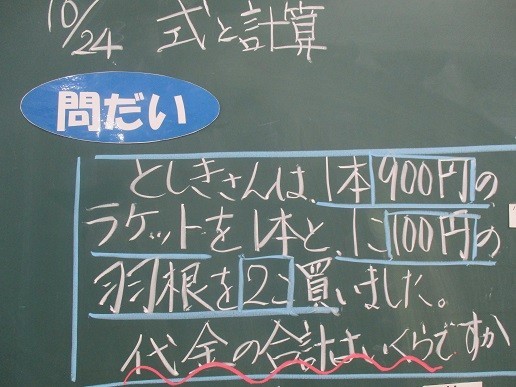 10/24 式と計算
問だい
としきさんは、1本900円の
ラケットを1本と、1こ100円の
羽根を2こ買いました。
代金の合計はいくらですか